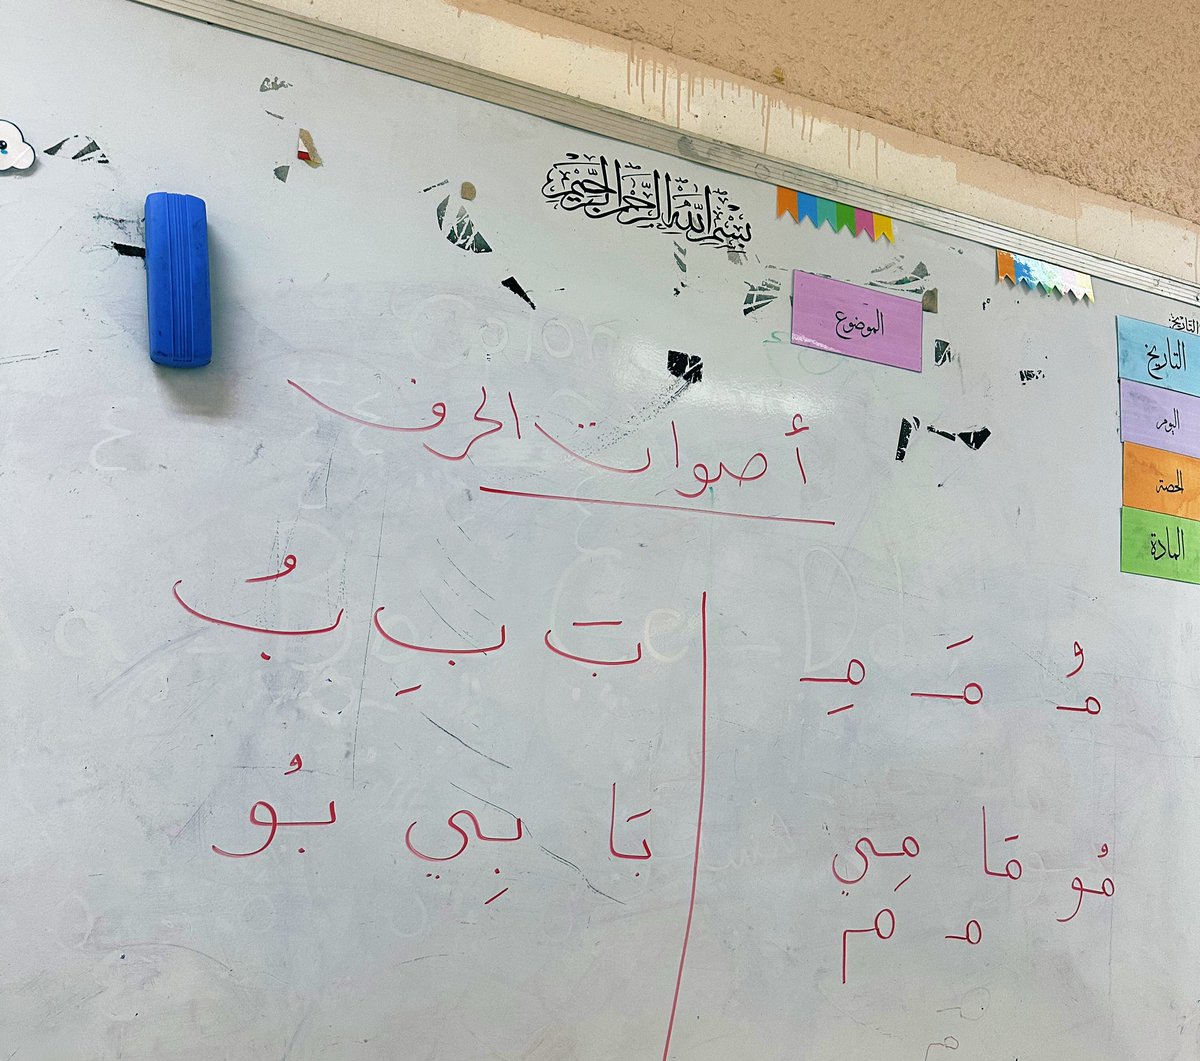 بِسْمِ اللهِ الرَّحْمٰنِ الرَّحِيْمِ
الموضوع
التاريخ
التاريخ
اليوم
الحصة
المادة
أصوات الحرف
مُ مَ مِ
مُو مَا مِي
مـ م
بَ بِ بُ
بَا بِي بُو